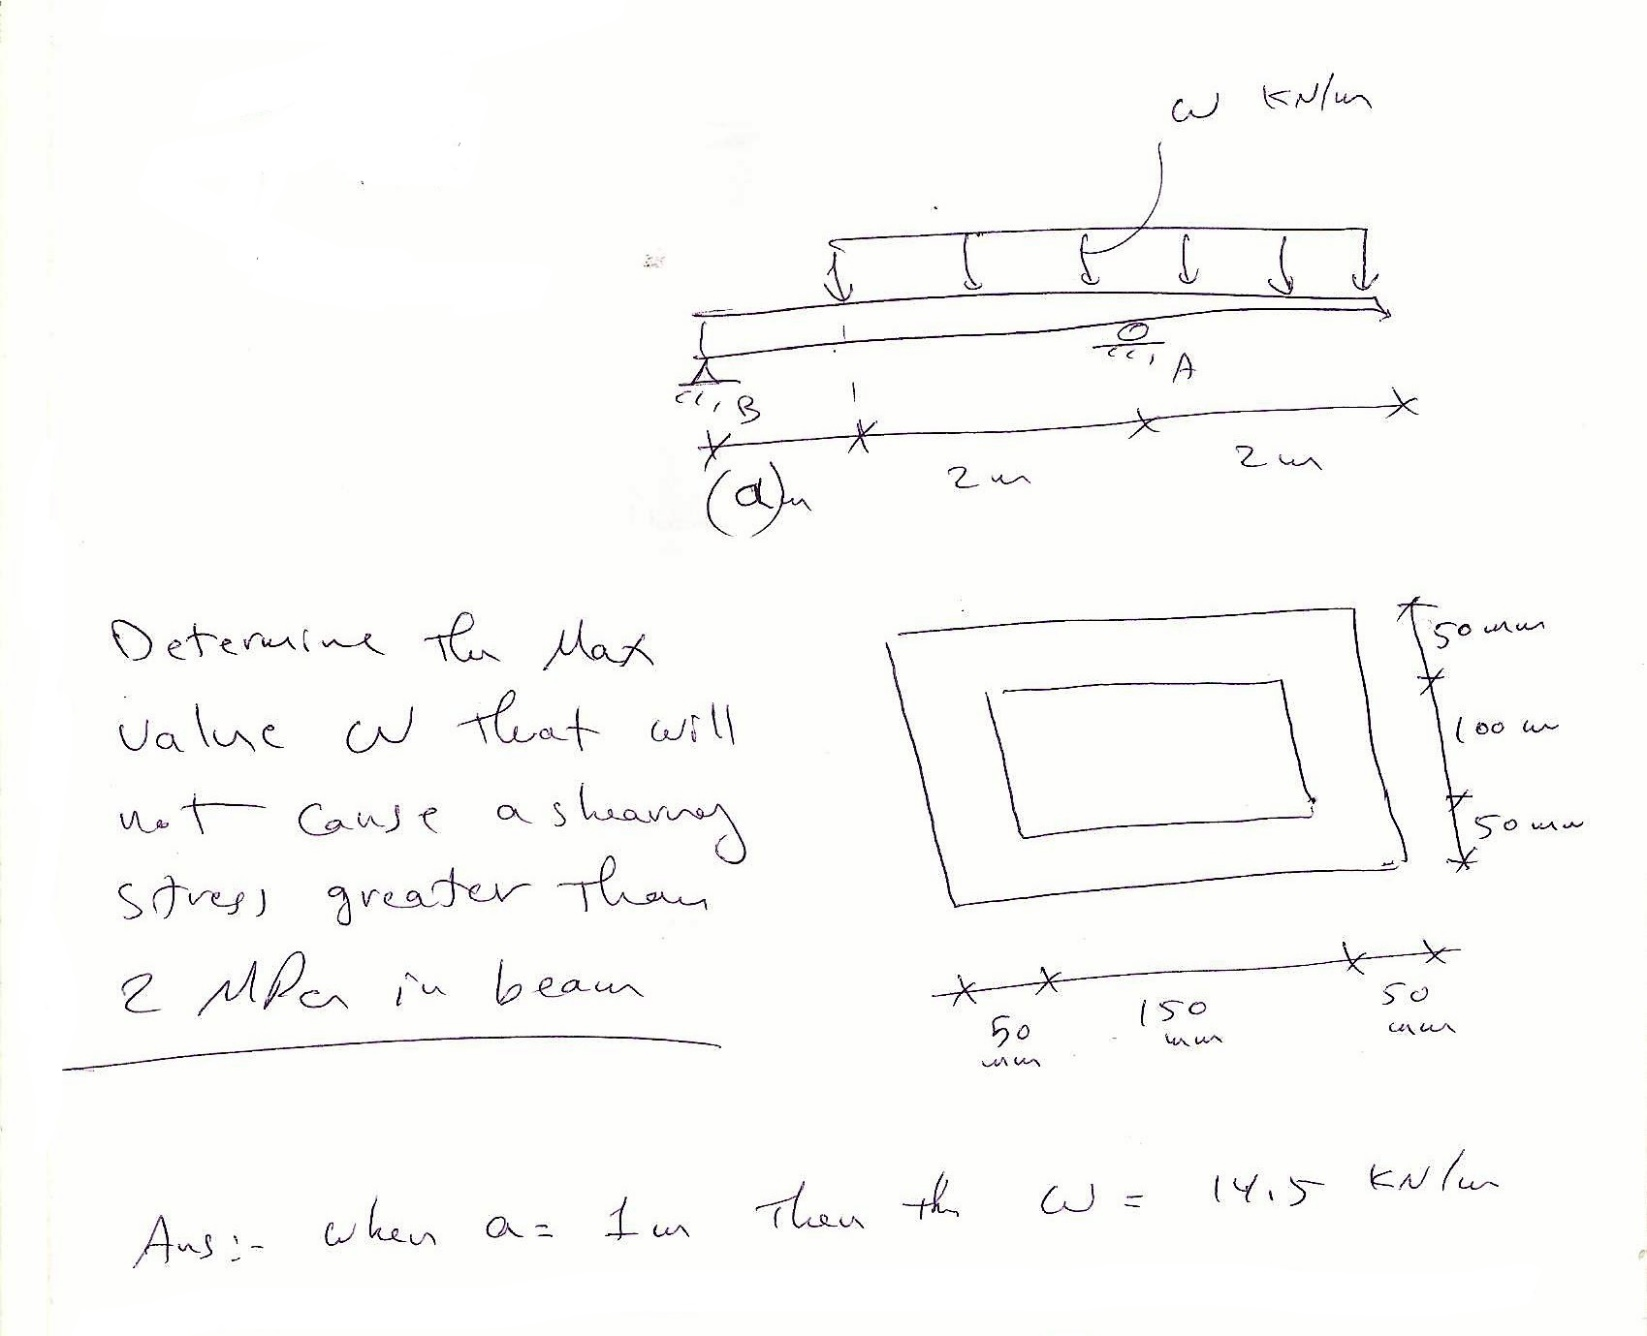 ω KN/m
B
A
(a)m
2m
2m
Determine the Max
value ω that will
not cause a shearing
stress greater than
2 MPa in beam
50 mm
100 m
50 mm
50
mm
150
mm
50
mm
Ans:- when a= 1m Then the ω = 14.5 KN/m